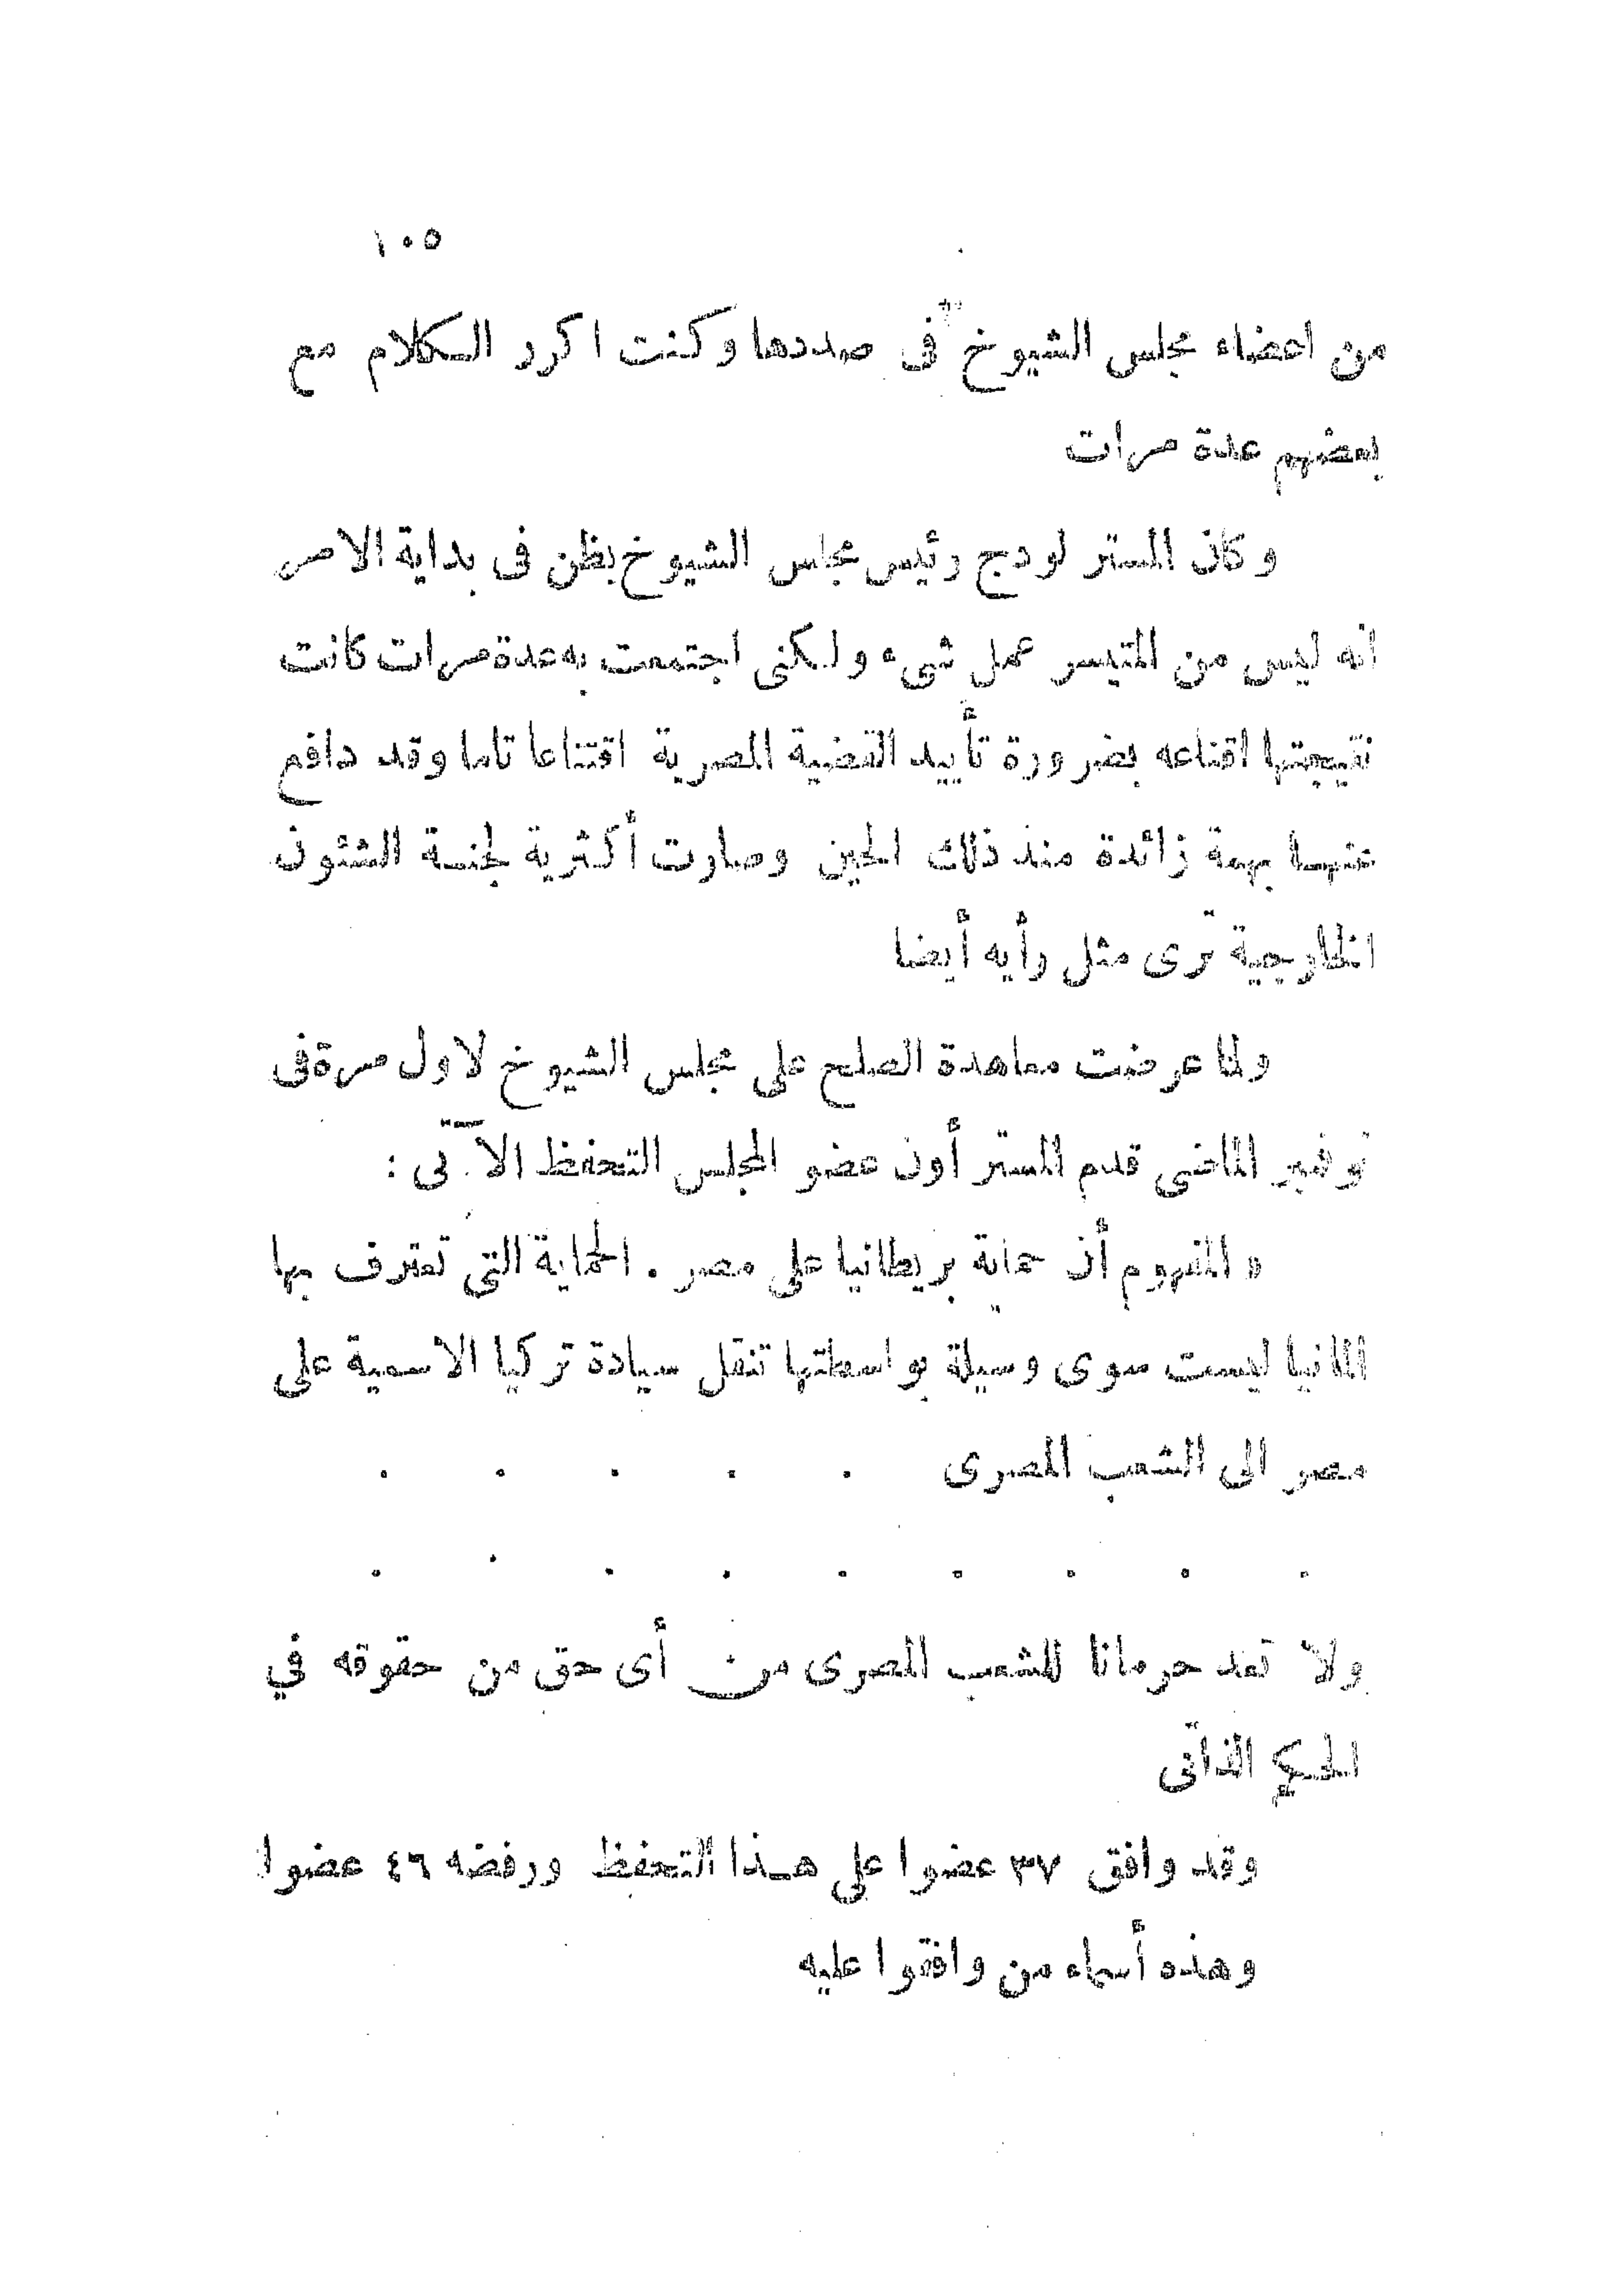 ١٠٥
من اعضاء مجلس الشيوخ فى صددها وكنت اكرر الكلام مع
بعضهم عدة مرات
وكان المستر لودج رئيس مجلس الشيوخ يظن فى بداية الامر
انه ليس من المتيسر عمل شىء ولكنى اجتمعت به عدة مرات كانت
نتيجتها اقناعه بضرورة تأييد القضية المصرية اقتناعا تاما وقد دافع
عنها بهمة زائدة منذ ذلك الحين وصارت أكثرية لجنة الشئون
الخارجية ترى مثل رأيه أيضا
ولما عرضت معاهدة الصلح على مجلس الشيوخ لاول مرة فى
نوفمبر الماضى قدم المستر أون عضو المجلس التحفظ الآتى :
« المفهوم أن حماية بريطانيا على مصر . الحماية التى تعترف بها
المانيا ليست سوى وسيلة بواسطتها تنقل سيادة تركيا الاسمية على
مصر الى الشعب المصرى . . . . .
. . . . . . . . .
ولا تعد حرمانا للشعب المصرى من أى حق من حقوقه في
الحكم الذاتى
وقد وافق ٣٧ عضوا على هذا التحفظ ورفضه ٤٦ عضوا
وهذه أسماء من وافقوا عليه